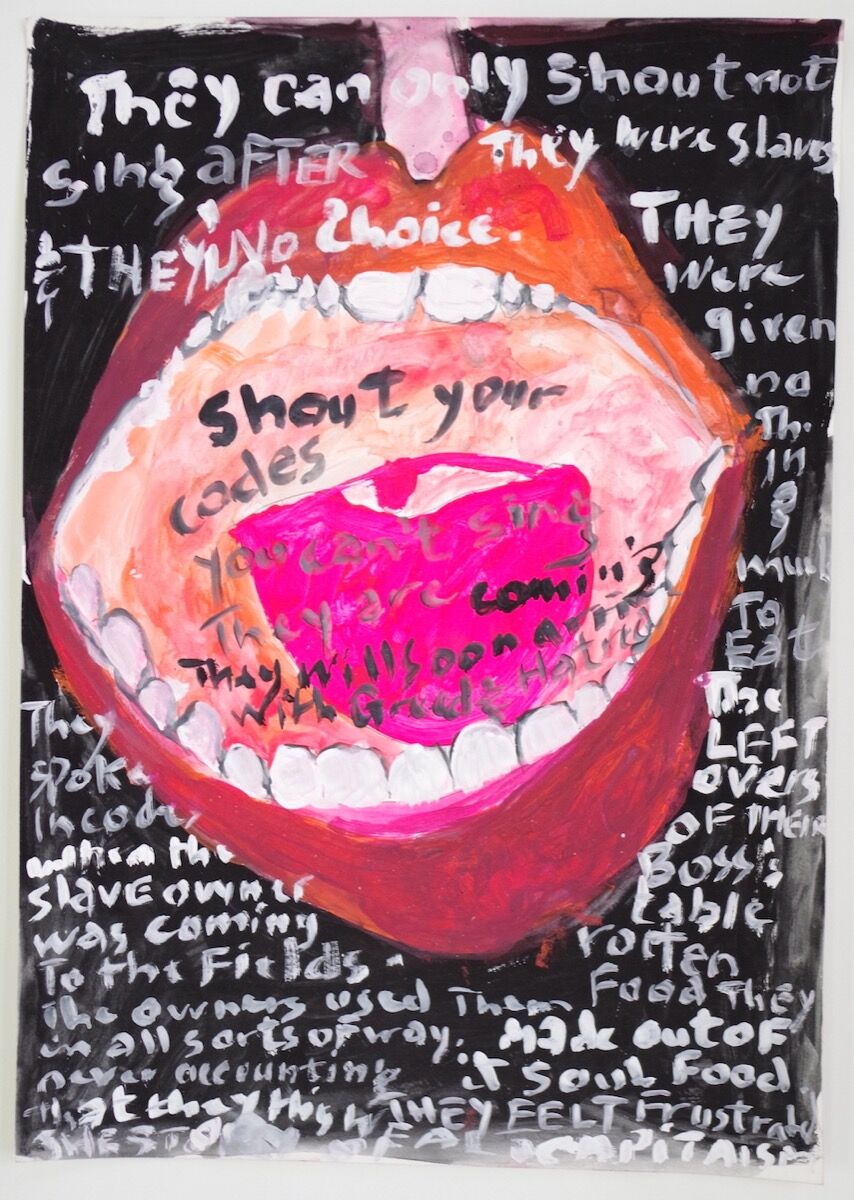 They can only Shout not
Sing AFTER
They were Slaves
& THEY NO Choice.
THEY
were
given
no
Th.
in
g
much
To
Eat
The
LEFT
overs
OF THEIR
Boss's
table
rotten
Food They
Made out oF
it Soul Food
THEY FELT Frustrated
CAPITAISM
Shout your
codes
you can't sing
They are coming
They will soon arrive
with Greed & Hatred
They
spoke
In code,
when the
SlavE owner
was coming
To the Fields
The owners used Them
in all sorts of way.
never accounting
that they